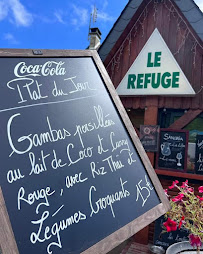 Coca-Cola
Plat du Jour
Gambas persillées
au lait de Coco et Curry
Rouge, avec Riz Thaï et
Légumes Croquants 15€
LE
REFUGE